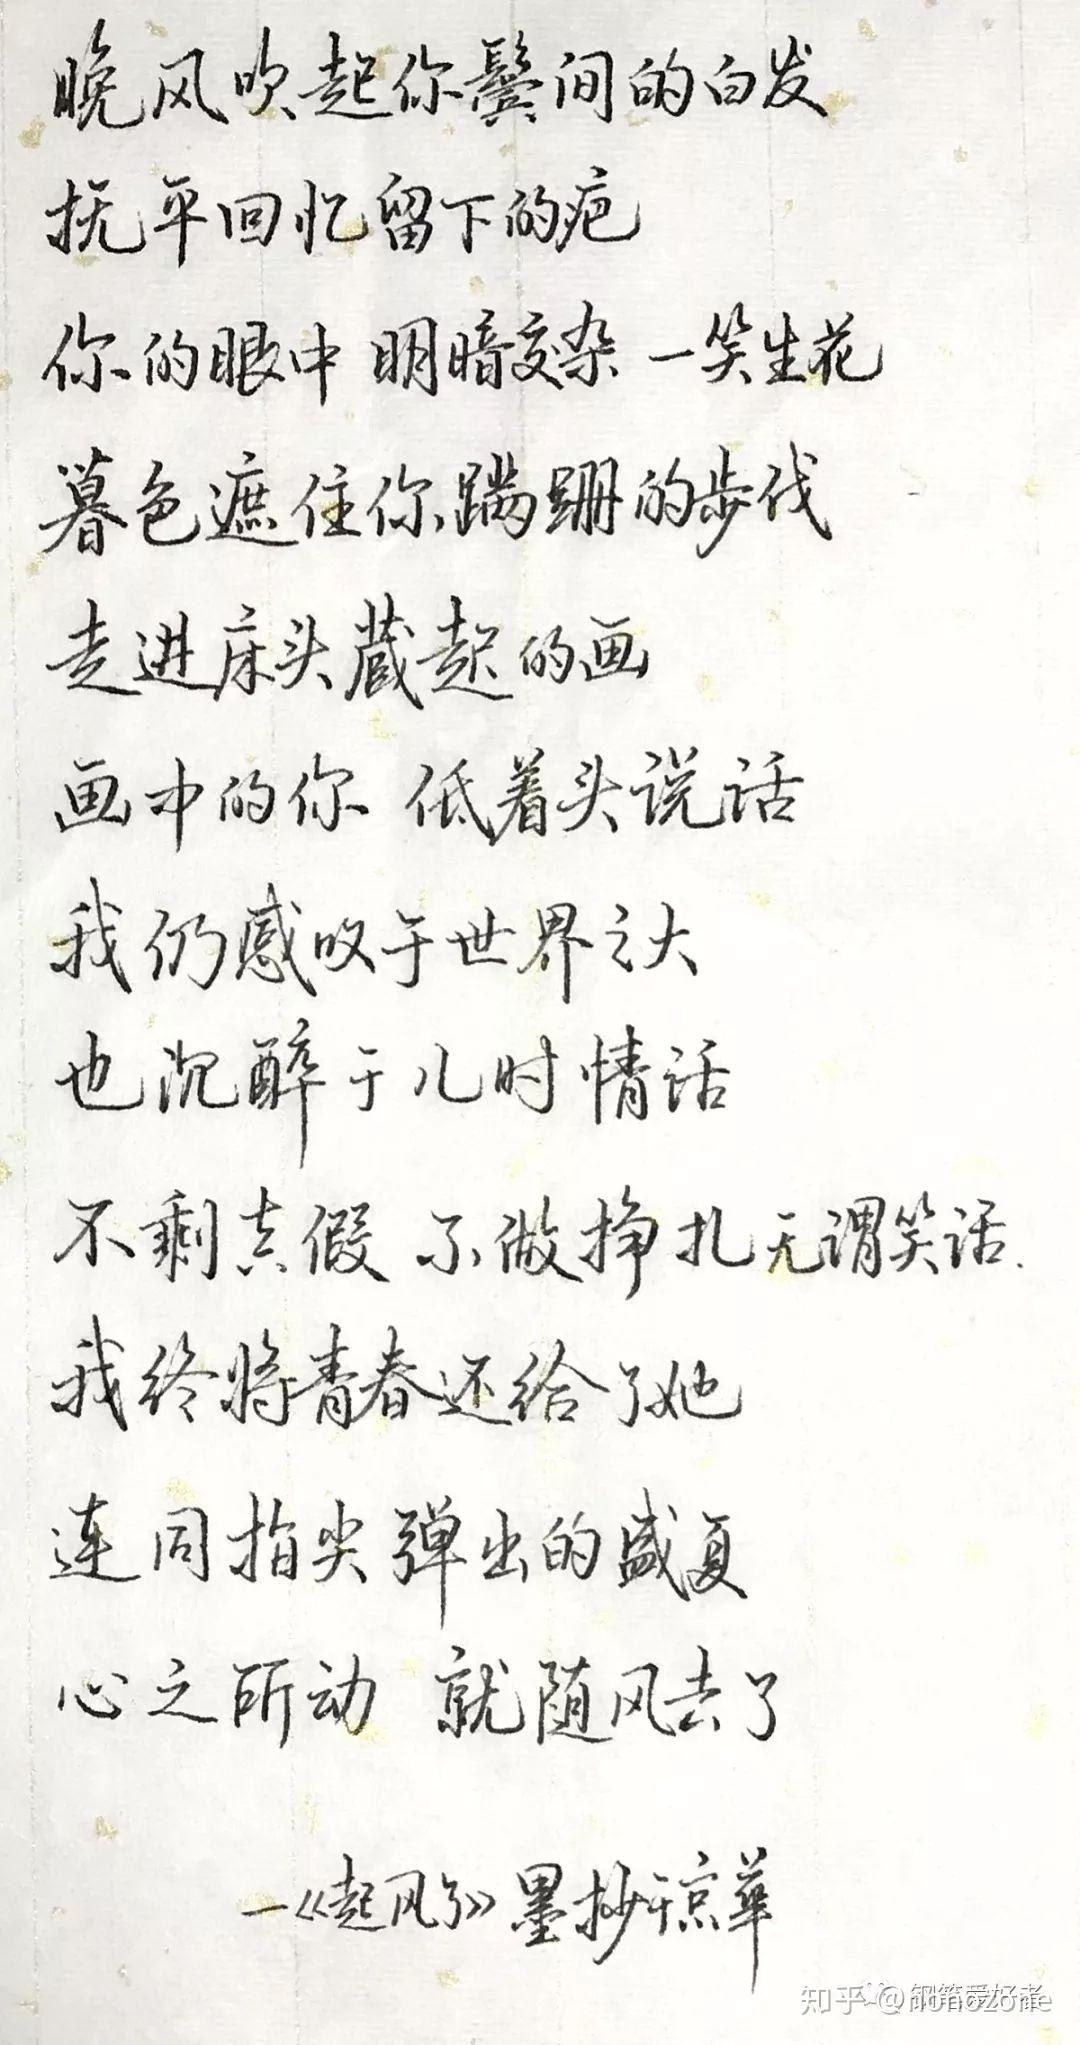 晚风吹起你鬓间的白发
抚平回忆留下的疤
你的眼中 明暗交杂 一笑生花
暮色遮住你蹒跚的步伐
走进床头藏起的画
画中的你 低着头说话
我仍感叹于世界之大
也沉醉于儿时情话
不剩真假 不做挣扎 无谓笑话.
我终将青春还给了她
连同指尖弹出的盛夏
心之所动 就随风去了
—《起风了》墨抄于京華
知乎 @nonozone
钢笔爱好者